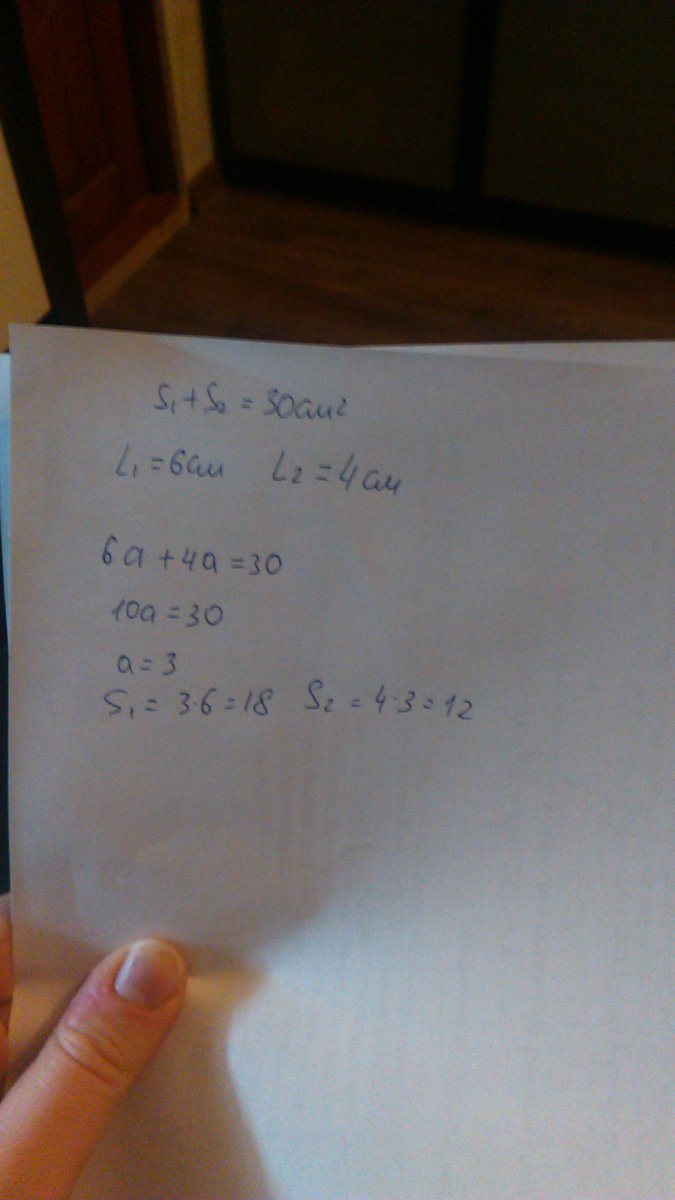 S₁+S₂ = 30см²
L₁=6см L₂=4см
6a+4a=30
10a=30
a=3
S₁= 3·6=18 S₂ = 4·3=12